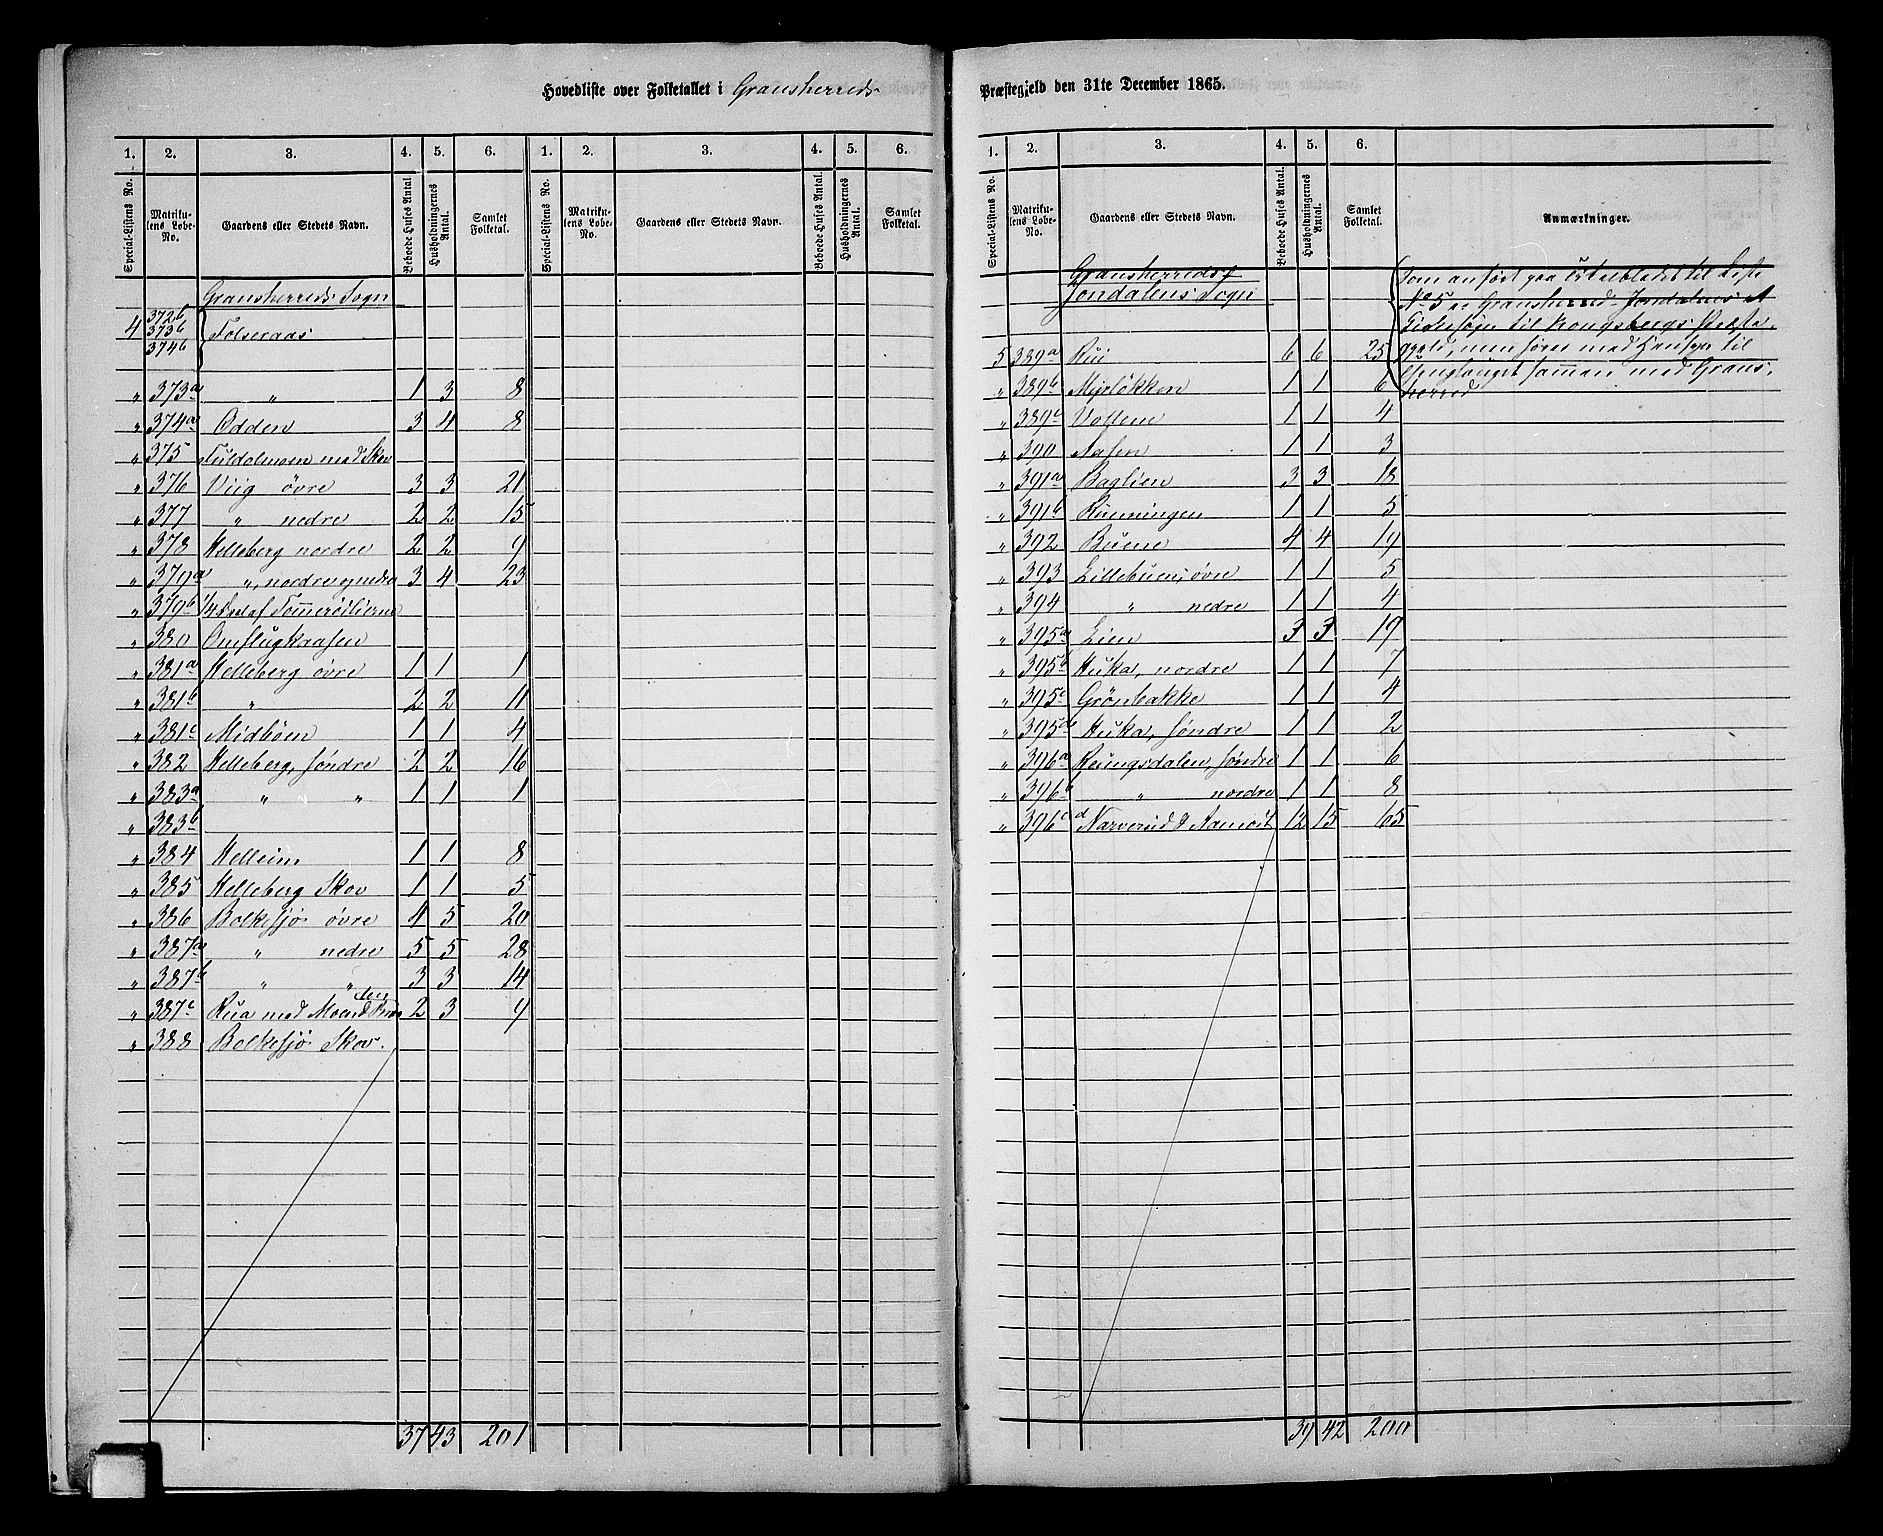 Hovedliste over Folketallet i Gransherreds
1. 2. 3. 4. 5. 6. 1. 2. 3. 4. 5. 6.
Special-Listens No. Matrikulens Løbe-No. Gaardens eller Stedets Navn. Beboede Huses Antal. Husholdningernes Antal. Samlet Folketal. Special-Listens No. Matrikulens Løbe-No. Gaardens eller Stedets Navn. Beboede Huses Antal. Husholdningernes Antal. Samlet Folketal.
Gransherreds Sogn
372b
4 373b Folseraas
374b
" 373a " 1 3 8
" 374a Odden 3 4 8
" 375 Fuldalmoen med Skov
" 376 Viig øvre 3 3 21
" 377 " nedre 2 2 15
" 378 Helleberg nordre 2 2 9
" 379a ", nordre 3 4 23
" 379b 1/4 Deel af
" 380
" 381a Helleberg øvre 1 1 1
" 381b " 2 2 11
" 381c Midbøen 1 1 4
" 382 Helleberg, søndre 2 2 16
" 383a " " 1 1 1
" 383b
" 384 Helleim 1 1 8
" 385 Helleberg Skov 1 1 5
" 386 Bolkesjø øvre 4 5 20
" 387a " nedre 5 5 28
" 387b " " 3 3 14
" 387c Rua med 2 3 9
" 388 Bolkesjø Skov.
37 43 201
Præstegjeld den 31te December 1865.
1. 2. 3. 4. 5. 6.
Special-Listens No. Matrikulens Løbe-No. Gaardens eller Stedets Navn. Beboede Huses Antal. Husholdningernes Antal. Samlet Folketal. Anmærkninger.
Gransherreds
Jondalens Sogn
Som anført paa til Liste
No 5 er Gransherred-Jondalens
til Kongsbergs Præste-
gjeld, men føres med Hensyn til
sammen med Grans-
herred
5 389a Rui 6 6 25
" 389b Myrløkken 1 1 6
" 389c Vollene 1 1 4
" 390 Aasen 1 1 3
" 391a Baglien 3 3 18
" 391b Rünningen 1 1 5
" 392 Buene 4 4 19
" 393 Lillebuen, øvre 1 1 5
" 394 " nedre 1 1 4
" 395a Lien 3 3 19
" 395b Huka, nordre 1 1 7
" 395c Grønbakke 1 1 4
" 395d Huka, søndre 1 1 2
" 396a Reiingsdalen, søndre 1 1 6
" 396b " nordre 1 1 8
" 396c d Narverud & Aamodt 12 15 65
39 42 200